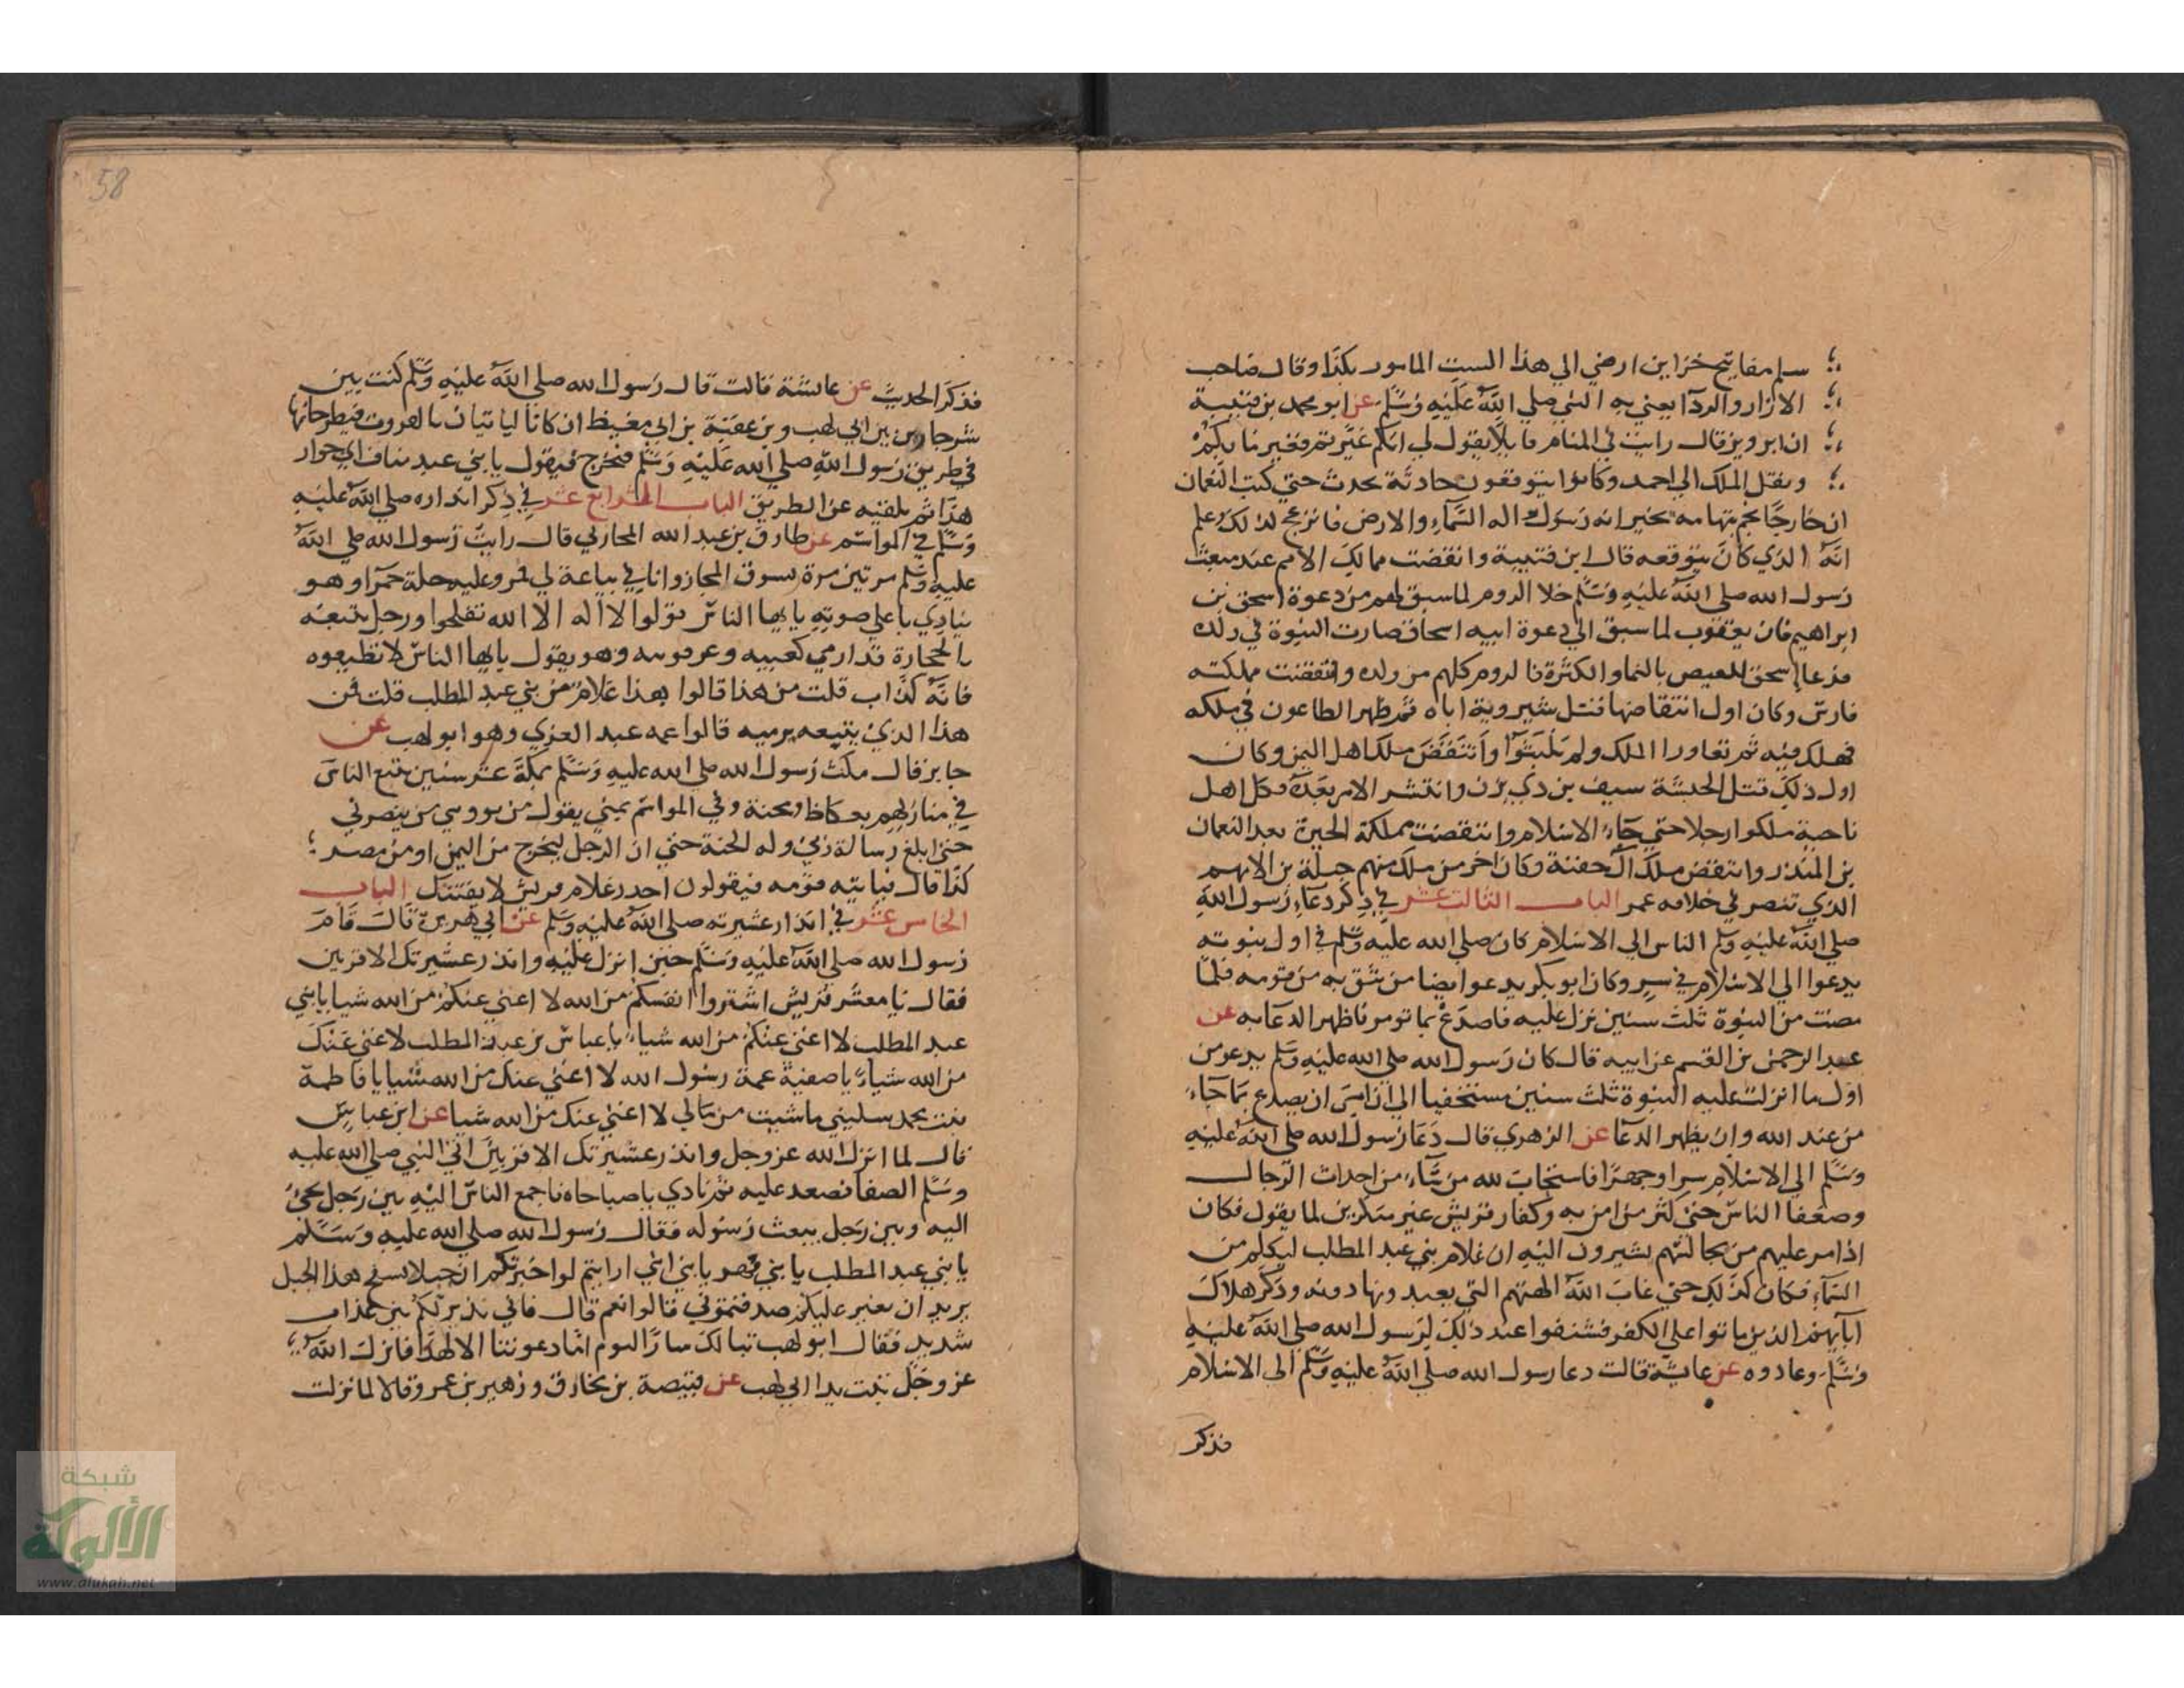 سلم مفاتيح خزاين ارضي الي هذا البيت المامور بكذا وقال صاحب
الازار والردآ يعني به النبي صلي الله عليه وسلم عن ابو محمد بن قتيبة
ان ابرويز قال رايت في المنام قايلا يقول لي انكم غيرتم فغير ما بكم
ونقل الملك الي احمد وكانوا يتوقعون حادثة تحدث حتي كتب النعمان
ان خارجا نجم بتهامه يخبر انه رسول اله السمآء والارض فانزعج لذلك وعلم
انه الذي كان يتوقعه قال ابن قتيبة وانتقضت ممالك الامم عند مبعث
رسول الله صلي الله عليه وسلم خلا الروم لما سبق لهم من دعوة اسحق بن
ابراهيم فان يعقوب لما سبق الي دعوة ابيه اسحاق صارت النبوة في ولده
فدعا اسحق للعيص بالنما والكثرة فالروم كلهم من ولده وانتقضت مملكته
فارس وكان اول انتقاضها قتل شيروية اباه ثم ظهر الطاعون في ملكه
فهلك فيه ثم تعاورا الملك ولم يلبثوا وانتقض ملك اهل اليمن وكان
اول ذلك قتل الحبشة سيف بن ذي يزن وانتشر الامر بعده فكل اهل
ناحية ملكوا رجلا حتي جاء الاسلام وانتقضت مملكة الحيرة بعد النعمان
بن المنذر وانتقض ملك ال جفنة وكان اخر من ملك منهم جبلة بن الايهم
الذي تنصر في خلافه عمر الباب الثالث عشر في ذكر دعاء رسول الله
صلي الله عليه وسلم الناس الي الاسلام كان صلي الله عليه وسلم في اول نبوته
يدعوا الي الاسلام في سر وكان ابو بكر يدعوا ايضا من يثق به من قومه فلما
مضت من النبوة ثلث سنين نزل عليه فاصدع بما تومر فاظهر الدعا به عن
عبد الرحمن بن القسم عن ابيه قال كان رسول الله صلي الله عليه وسلم يدعو من
اول ما انزلت عليه النبوة ثلث سنين مستخفيا الي ان امر ان يصدع بما جاء
من عند الله وان يظهر الدعا عن الزهري قال دعا رسول الله صلي الله عليه
وسلم الي الاسلام سرا وجهرا فاستجاب لله من شآء من احداث الرجال
وضعفا الناس حتي كثر من امن به وكفار قريش غير منكرين لما يقول فكان
اذا مر عليهم من مجالسهم يشيرون اليه ان غلام بني عبد المطلب ليكلم من
السمآء فكان كذلك حتي عاب الله الهتهم التي يعبدونها دونه وذكر هلاك
آبآيهم الذين ماتوا علي الكفر فشنفوا عند ذلك لرسول الله صلي الله عليه
وسلم وعادوه عن عايشة قالت دعا رسول الله صلي الله عليه وسلم الي الاسلام
فذكر
58
فذكر الحديث عن عايشة قالت قال رسول الله صلي الله عليه وسلم كنت بين
شر جارين بين ابي لهب وبن عقبة بن ابي معيط ان كانا لياتيان بالفروث فيطرحانها
في طريق رسول الله صلي الله عليه وسلم فيخرج فيقول يا بني عبد مناف اي جوار
هذا ثم يلقيه عن الطريق الباب الرابع عشر في ذكر انذاره صلي الله عليه
وسلم في المواسم عن طارق بن عبد الله المحاربي قال رايت رسول الله صلي الله
عليه وسلم مرتين مرة بسوق المجاز وانا في بياعة لي فمر وعليه حلة حمرا وهو
ينادي باعلي صوته يا يها الناس قولوا لا اله الا الله تفلحوا ورجل يتبعه
بالحجارة قد ادمي كعبيه وعرقوبيه وهو يقول يا يها الناس لا تطيعوه
فانه كذاب قلت من هذا قالوا هذا غلام من بني عبد المطلب قلت فمن
هذا الذي يتبعه يرميه قالوا عمه عبد العزي وهو ابو لهب عن
جابر قال مكث رسول الله صلي الله عليه وسلم بمكة عشر سنين يتبع الناس
في منازلهم بعكاظ ومجنة وفي المواسم بمني يقول من يوويني من ينصرني
حتي ابلغ رسالة ربي وله الجنة حتي ان الرجل ليخرج من اليمن او من مصر
كذا قال فياتيه قومه فيقولون احذر غلام قريش لا يفتنك الباب
الخامس عشر في انذار عشيرته صلي الله عليه وسلم عن ابي هريرة قال قام
رسول الله صلي الله عليه وسلم حين انزل عليه وانذر عشيرتك الاقربين
فقال يا معشر قريش اشتروا انفسكم من الله لا اغني عنكم من الله شيا يا بني
عبد المطلب لا اغني عنكم من الله شياء يا عباس بن عبد المطلب لا غني عنك
من الله شياء يا صفية عمة رسول الله لا اغني عنك من الله شيا يا فاطمة
بنت محمد سليني ما شيت من مالي لا اغني عنك من الله شيا عن ابن عباس
قال لما انزل الله عز وجل وانذر عشيرتك الاقربين اتي النبي صلي الله عليه
وسلم الصفا فصعد عليه ثم نادي يا صباحاه فاجمع الناس اليه بين رجل يجئ
اليه وبين رجل يبعث رسوله فقال رسول الله صلي الله عليه وسلم
يا بني عبد المطلب يا بني فهر يا بني ارايتم لو اخبرتكم ان خيلا بسفح هذا الجبل
يريد ان تغير عليكم صدقتموني قالوا نعم قال فاني نذير لكم بين عذاب
شديد فقال ابو لهب تبا لك ساير اليوم اما دعوتنا الا لهذا فانزل الله
عز وجل تبت يدا ابي لهب عن قبيصة بن مخارق وزهير بن عمرو قالا لما نزلت
شبكة
الألوكة
www.alukah.net